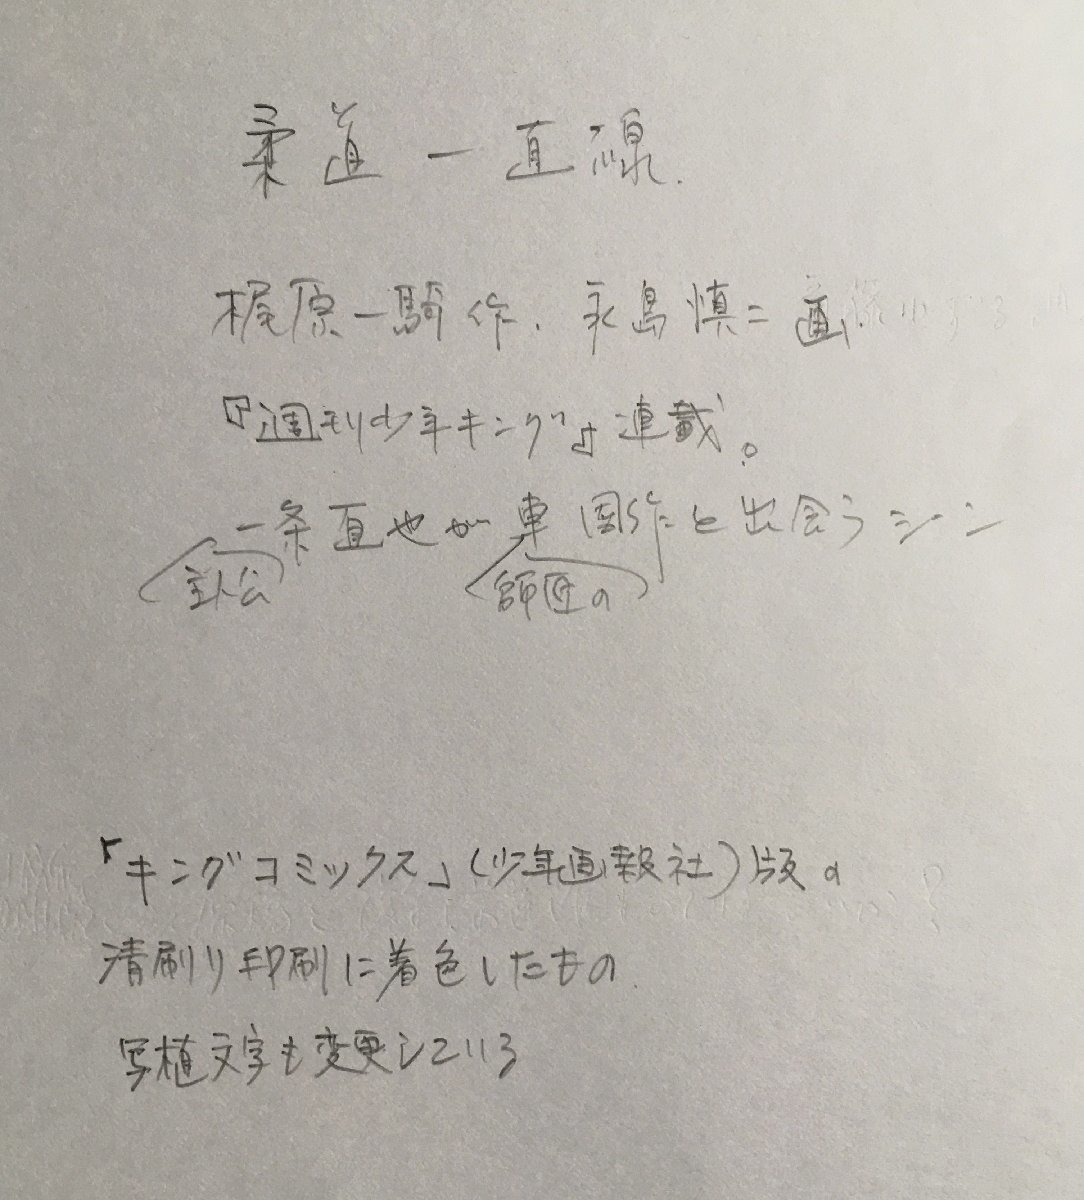 柔道一直線.
梶原一騎作. 永島慎二画.
『週刊少年キング』連載。
一条直也が車周作と出会うシーン
主人公 師匠の
「キングコミックス」(少年画報社)版の
清刷り印刷に着色したもの.
写植文字も変更している